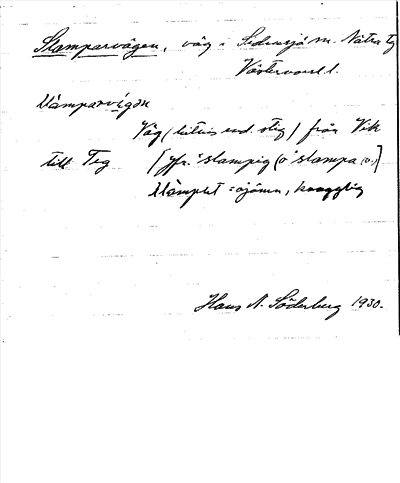 Stamparvägen, väg i Sidensjö sn. Nätra tg
Västernorrl. l.
Väg (bitvis end. stig) från Vik
till Teg [jfr. "stampig (o "stampa (v.)]
stämput = ojämn, knagglig
Hans N. Söderberg 1930.